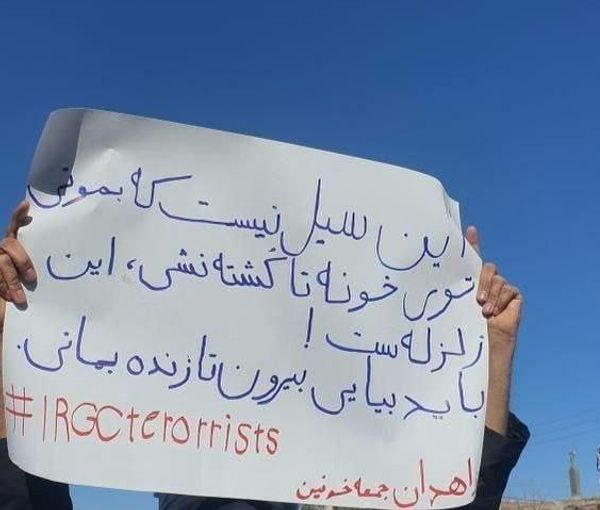 این سیل نیست که بمونی
توی خونه تا کُشته نشی، این
زلزله ست !
باید بیایی بیرون تا زنده بمانی.
#IRGCterorrists
اهدان جمعه خونین